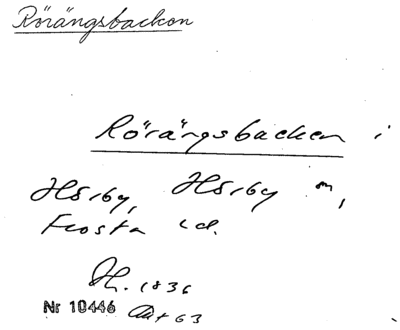 Rörängsbackon
Rörängsbacken i
Hörby, Hörby sn,
Frosta hd.
H. 1836
Nr 10446 Akt 63